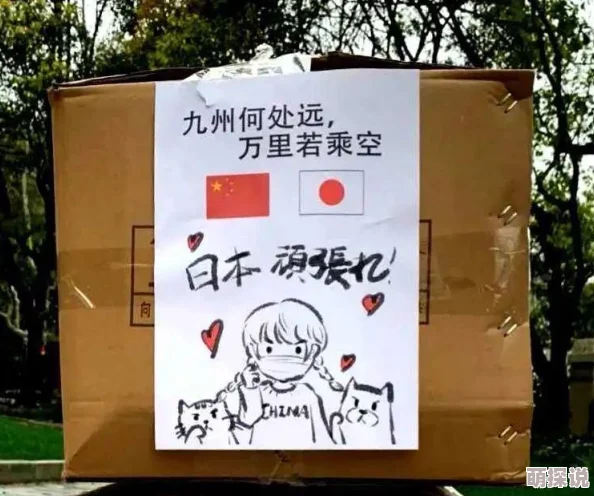 九州何处远，
万里若乘空
日本 頑張れ!
CHINA
向
萌探说